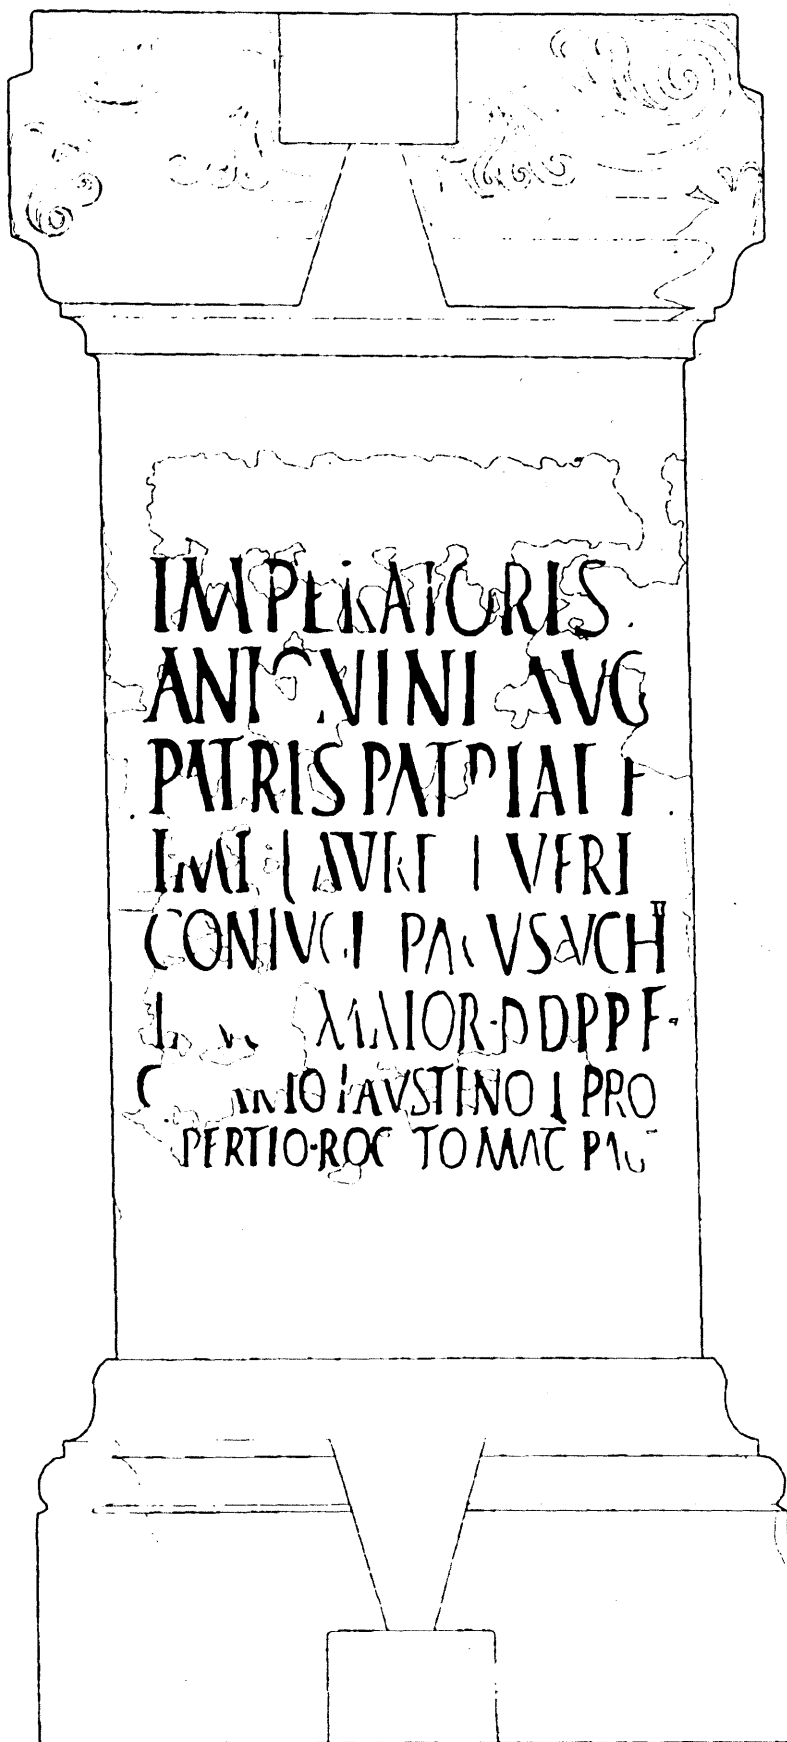 IMPERATORIS
ANTONINI AVG
PATRIS PATRIAE F
IMP L AVRE L VERI
CONIVGI PAGVS AVCH
MAIOR·D D P P F
FAVSTINO L PRO
PERTIO·ROG TO MAG PAG